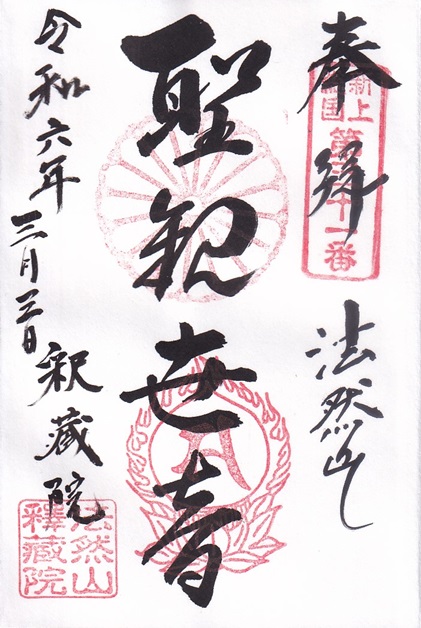 奉拝
法然山
聖観世音
令和六年
三月三日
釈蔵院
新上
国
十一番
法然山
釋蔵院